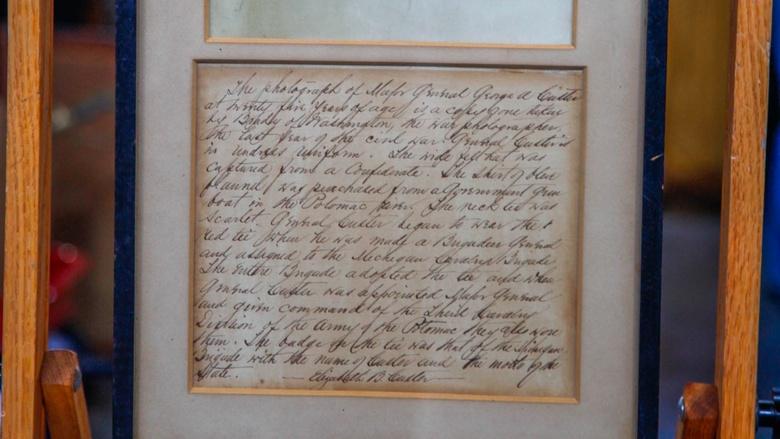 The photograph of Major General George A Custer
at twenty five years of age, is a copy of one taken
by Brady of Washington, the war photographer,
the last year of the civil war. General Custer is
in undress uniform. The wide felt hat was
captured from a Confederate. The shirt of blue
flannel, was purchased from a Government gun
boat in the Potomac river. The neck tie was
scarlet. General Custer began to wear the
red tie when he was made a Brigadier General
and assigned to the Michigan Cavalry Brigade
The entire Brigade adopted the tie and when
General Custer was appointed Major General
and given command of the Third Cavalry
Division of the Army of the Potomac they also wore
them. The badge on the tie was that of the Michigan
Brigade with the name of Custer and the motto of the
State. — Elizabeth B. Custer —